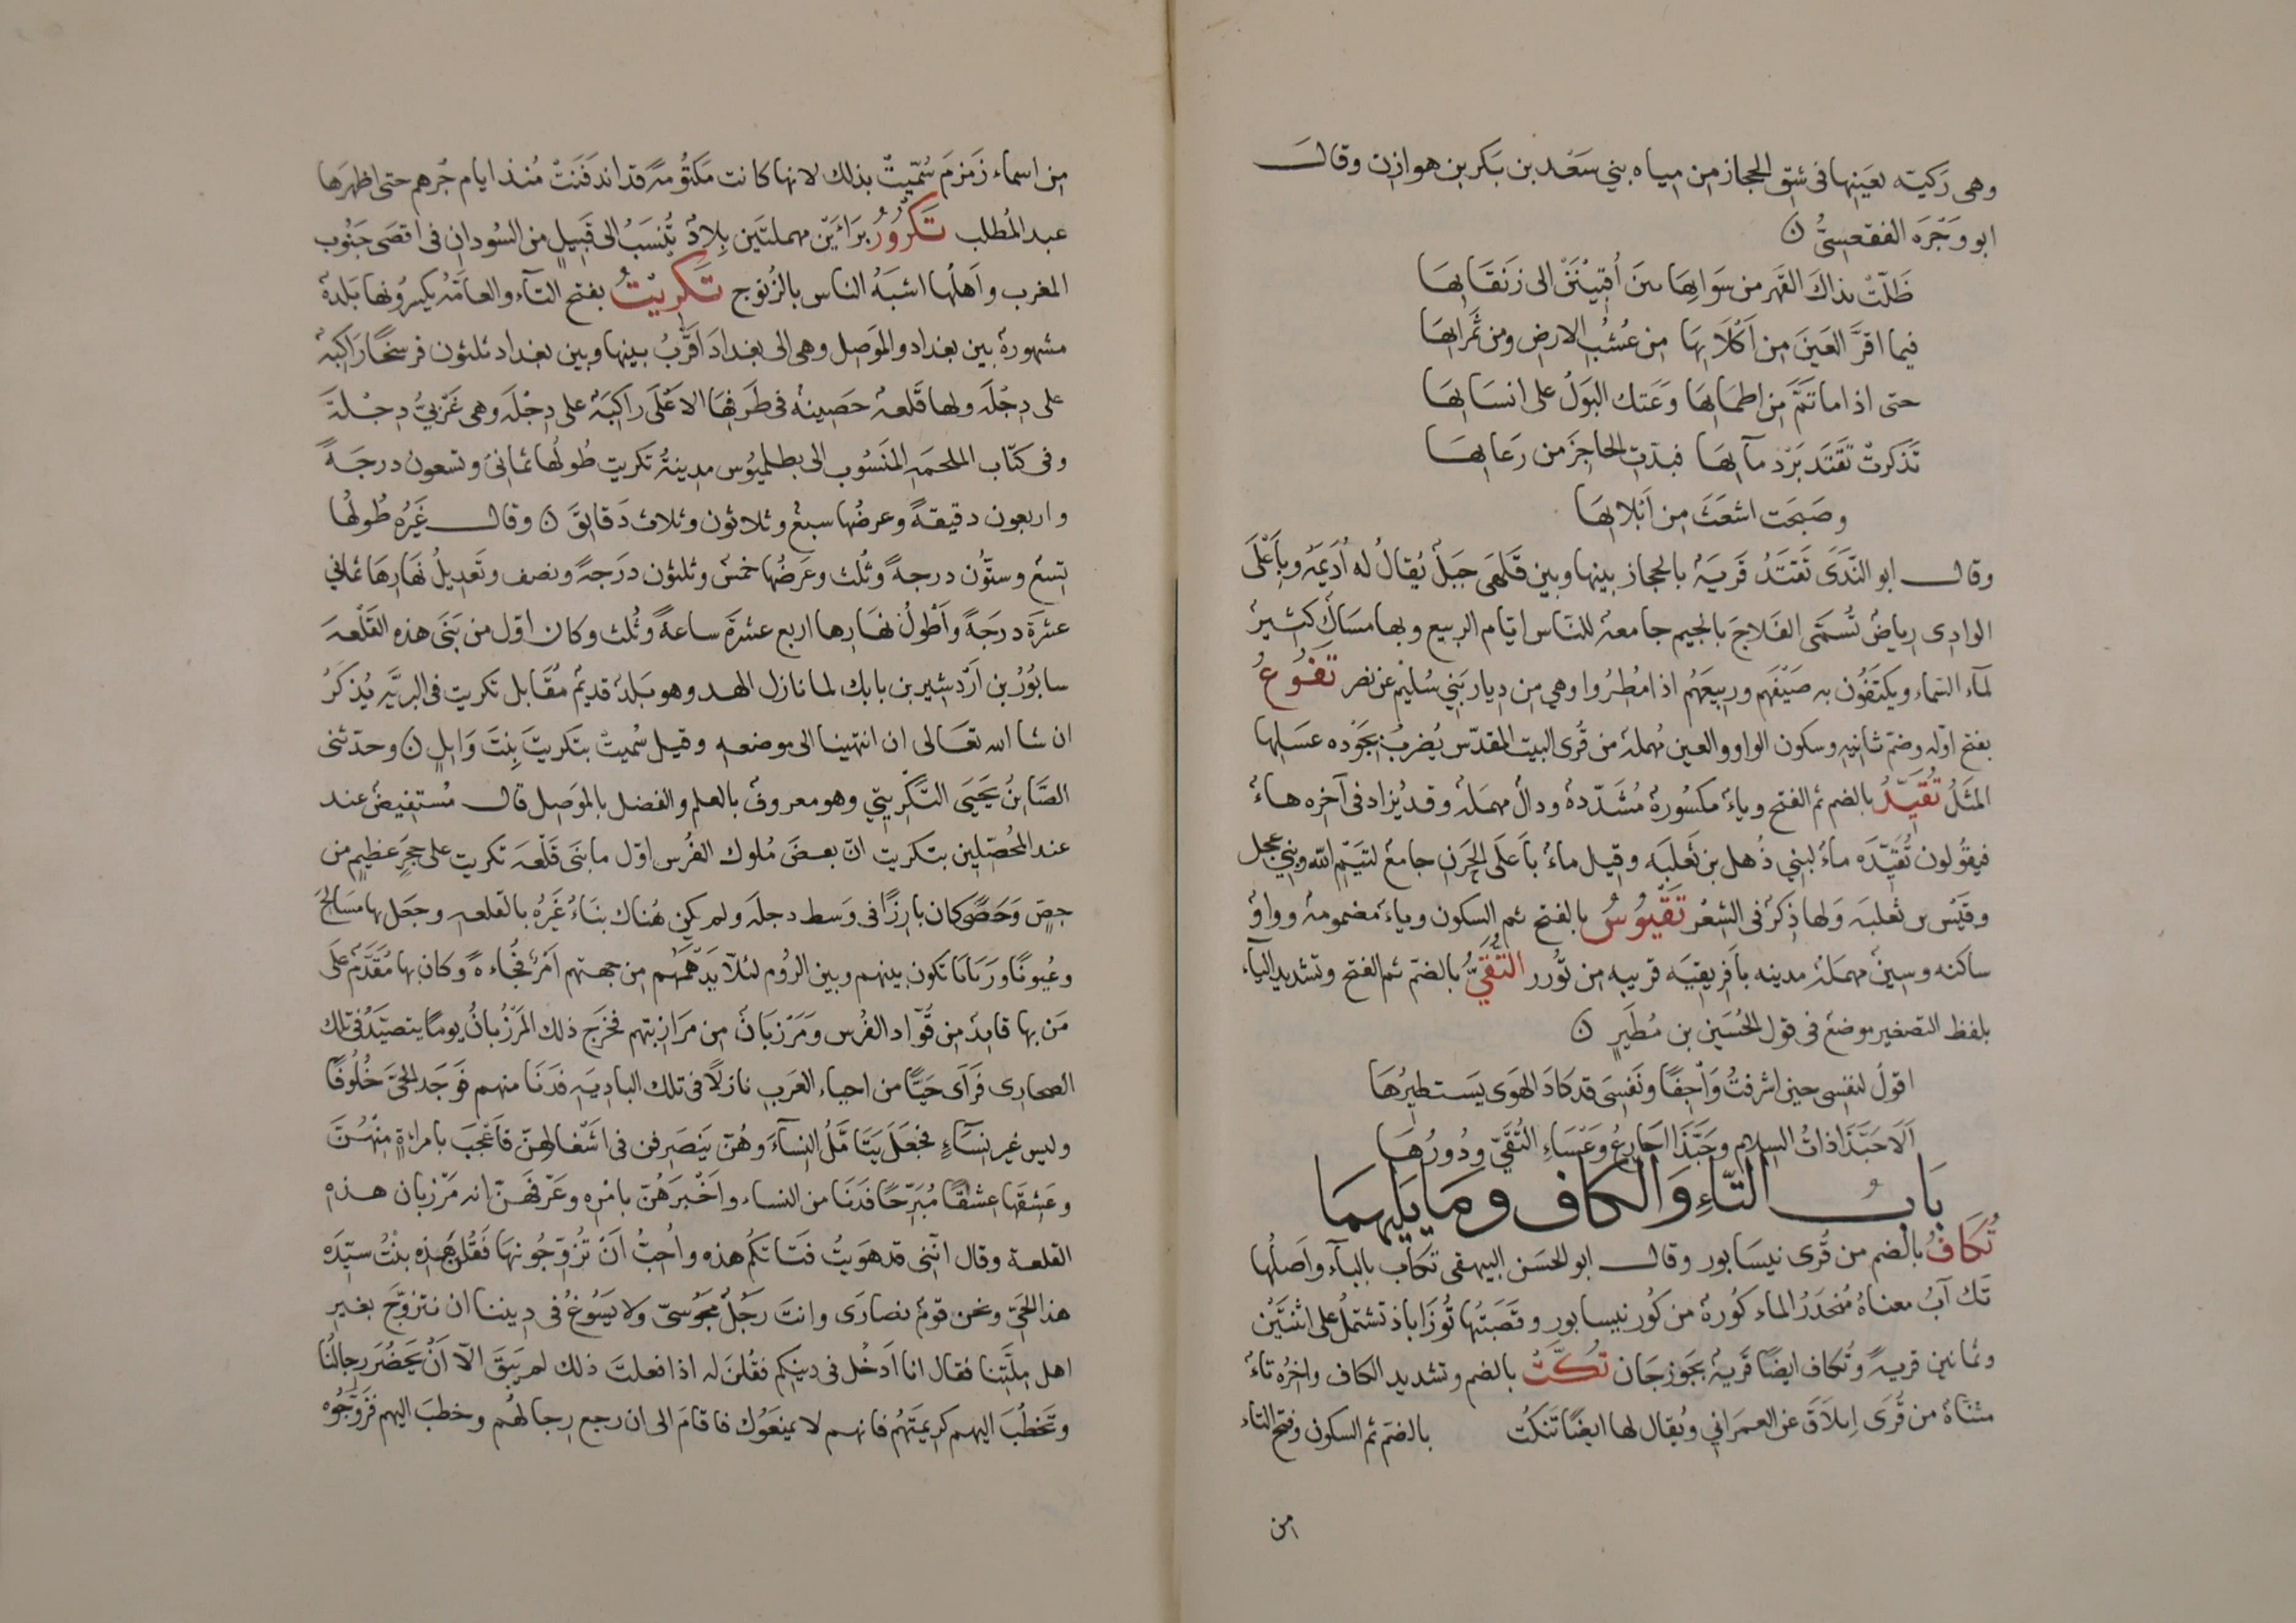 وهى رَكيّه بعَينِها فى شقِّ الحجاز من مياه بني سَعْد بن بَكر بن هوازن وقال
ابو وَجْزَه الفقعسِىُّ ن
ظَلّتْ بذاكَ القَهرِ من سَوَابِهَا بينَ أُقَيْنَيْن الى زَنقَابِهَا
فيما اقرَّ العَينَ مِن اَكْلَابِهَا من عُشبِ الارضِ ومن ثَمَرابهَا
حتى اذا ما تَمَّ مِن اظمَابِهَا وَعَتك البَولُ على انسَابِهَا
تَذَكّرتْ تَقتَد بَرْد مآبِهَا فبذّتِ الحَاجِزَ من رعَابِهَا
وصَبحَت اشعَثَ مِن اَبْلابهَا
وقال ابو النَّدَى تَقتَدُ قَريَةٌ بالحجاز بينها وبين قَلَهَى جَبَلٌ يُقالُ له اُدَيمَةُ وبأَعْلَى
الوادِى رِياضٌ تُسمَّى الفَلاجَ بالجيم جامعةٌ للنّاس ايّام الربيع وبها مسَاكٌ كثيرٌ
لمآءِ السَّماء ويكتَفُون به صَيْفَهم وربيعَهُم اذا مُطِرُوا وهى من دِيار بَنِي سُلَيْم عن نصر تَقُوعُ
بفتح اوّله وضمّ ثانيهِ وسكون الواو والعين مُهملةٌ من قُرى البيت المقدّس يُضرَبُ بجَوْدَه عسَلِها
المَثَلُ تُقَيِّدُ بالضم ثم الفتح وياءٌ مكسُورةٌ مُشَدّدةٌ ودالٌ مهمَلةٌ وقد يُزاد فى آخره هاءٌ
فيقُولون تُقَيّدَه ماءٌ لبنِي ذُهل بن ثَعلبَه وقيل ماءٌ بأَعلَى الحَزنِ جامعٌ لتَيمِ الله وبني عجل
وقَيْس بن ثَعلبَه وَلها ذِكرٌ فى الشعر تَقْيُوسُ بالفتح ثم السكون وياءٌ مضمومةٌ وواوٌ
ساكنه وسينٌ مهمَلةٌ مدينه بأفريقيَه قريبه من تَوْزر التُّقَيُّ بالضمّ ثم الفتح وتشديد اليآء
بلفظ التصغير موضعٌ فى قول الحُسَين بن مُطَيرٍ ن
اقولُ لنفسِى حين اشرفتُ وَاجِفًا ونَفسِىَ قد كادَ الهَوى يَستطيرُهَا
اَلَا حَبّذَا ذاتُ السِلامِ وحَبّذَا اَجارعُ وَعْسَاءِ التُّقَىِّ ودُورُهَا
بَابُ التّاءِ وَالكاف ومَا يَليهمَا
تُكَافُ بالضم من قُرى نيسَابور وقال ابو الحَسَن البيهقى تكآب بالبآءِ وأَصلُها
تَك آبُ معناهُ مُنحَدَرُ الماء كُورةٌ من كُور نيسابور وقَصَبتُها نُوزَاباذ تشتملُ على اثنَتَيْن
وثمانين قريةً وتُكاف ايضًا قَريةٌ بجَوزجَان تُكَّتُ بالضم وتشديد الكاف واخِرُه تاءٌ
مثنّاةٌ من قُرَى اِيلاَقَ عن العمرَانِي ويُقال لها ايضًا تنكُت بالضمّ ثم السكون وفتح التاء
من
مِن اسماء زَمزمَ سُمّيتْ بذلك لانها كانت مَكتُومةً قد اندَفَنَتْ مُنذ ايام جُرهم حتى اظهَرَها
عبد المُطلب تَكْرُورُ برَاءَيْن مهملتَين بِلادٌ تُنسَبُ الى قَبيلٍ من السُودانِ فى اقصَى جَنُوب
المغرب واَهلُها اشبَهُ الناس بالزُنوج تَكرِيْتُ بفتح التآءِ والعامّةُ يَكسِرُونها بَلدةٌ
مشهورةٌ بين بغداد والموَصِل وهى الى بغدادَ اَقْرَبُ بينها وبين بغداد ثلثون فرسخًا رَاكبةٌ
على دِجْلَه ولها قَلعةٌ حَصِينةٌ فى طَرفهَا الاَعْلَى راكبَةٌ على دِجْلَه وهى غَرْبيُّ دِجْلةَ
وفى كتاب الملحمَهِ المَنسُوب الى بطلميُوس مدينةُ تكريت طُولُها ثمانيٌ وتسعون درجَةً
واربعون دقيقةً وعرضُها سبعٌ وثلاثون وثلاث دَقايقَ ن وقال غَيرُه طُولُها
تِسعٌ وستّون درجةً وثُلث وعَرضُها خمسٌ وثلثون درَجةً ونصف وتَعديلُ نَهارِهَا ثماني
عشرَة درَجَةً وأَطْولُ نهَارِها اربع عشرَةَ ساعةً وثُلث وكان اوّل من بَنَى هذه القَلْعةَ
سابُورُ بن اَرْدشير بن بابك لما نازل الهد وهو بَلدٌ قديمٌ مُقَابل تكريت فى البرّيَهِ يُذكَرُ
ان شا الله تعَالى ان انتهينا الى موضعهِ وقيل سُميتْ بتَكريتَ بِنتَ وَايلٍ ن وحدّثنى
الصَّابنُ يَحيَى التَّكْرِيتِي وهو معروفٌ بالعلم والفضل بالموَصِل قال مُستفِيضٌ عند
عند المُحَصّلِين بتكريت انّ بعضَ مُلوك الفُرس اوّل ما بَنَى قَلْعَه تكريت على حجَرٍ عظيمٍ من
جصٍ وَحَصًى كان بارِزًا فى وَسط دجلَه ولم يكن هُناك بنَاءٌ غَيرُه بالقلعهِ وجعَل بها مسَالِحَ
وعُيونًا ورَبَايَا تكون بينهم وبين الرُوم لئلّا يَدْهَمَهُم من جهتهم اَمرٌ فُجاءةً وكان بها مُقَدَّمٌ على
مَن بها قايدٌ من قُوّاد الفُرس وَمَرْزبَانٌ من مَرَازِبَتهم فخرَج ذلك المَرْزُبانُ يومًا يتصيّدُ فى تلك
الصحارِى فَرَأَى حيًّا من احياء العَرب نازلًا فى تلك الباديَهِ فدَنَا منهم فَوجَد الحىَّ خُلُوفًا
وليس غير نِسَآءٍ فجعَلَ يتَامَّلُ النِسآءَ وهُنّ يَنصَرِفن فى اَشْغالهِنّ فاُعْجبَ بامراَةٍ مِنْهُنَّ
وعَشِقَها عشقًا مُبَرِّحًا فدَنَا من النساء واَخْبرَهُنّ بامْرِه وعَرّفَهنّ انه مَرْزبان هذه
القلعة وقال انّنِى قد هَوِيتُ فتَاتكُم هذه واُحِبُّ اَنْ تُزوِّجُونِيهَا فقُلن هَذِه بنْتُ سيّدَه
هذا الحَيّ ونحن قومٌ نصارَى وانتَ رَجُلٌ مجَوُسىّ ولا يَسُوغُ فى دِيننا ان نتزوّجَ بغيرِ
اهل مِلَّتِنا فقال انا اَدْخُل فى دِينِكم فقُلنَ له اذا فعلتَ ذلك لم يَبقَ الّا اَنْ يَحضُرَ رِجالُنا
وتَخطُبَ اليهم كَرِيمَتَهُم فانهم لا يمنَعُوك فاقامَ الى ان رجع رِجالهُم وخطبَ اليهم فزَوّجُوه